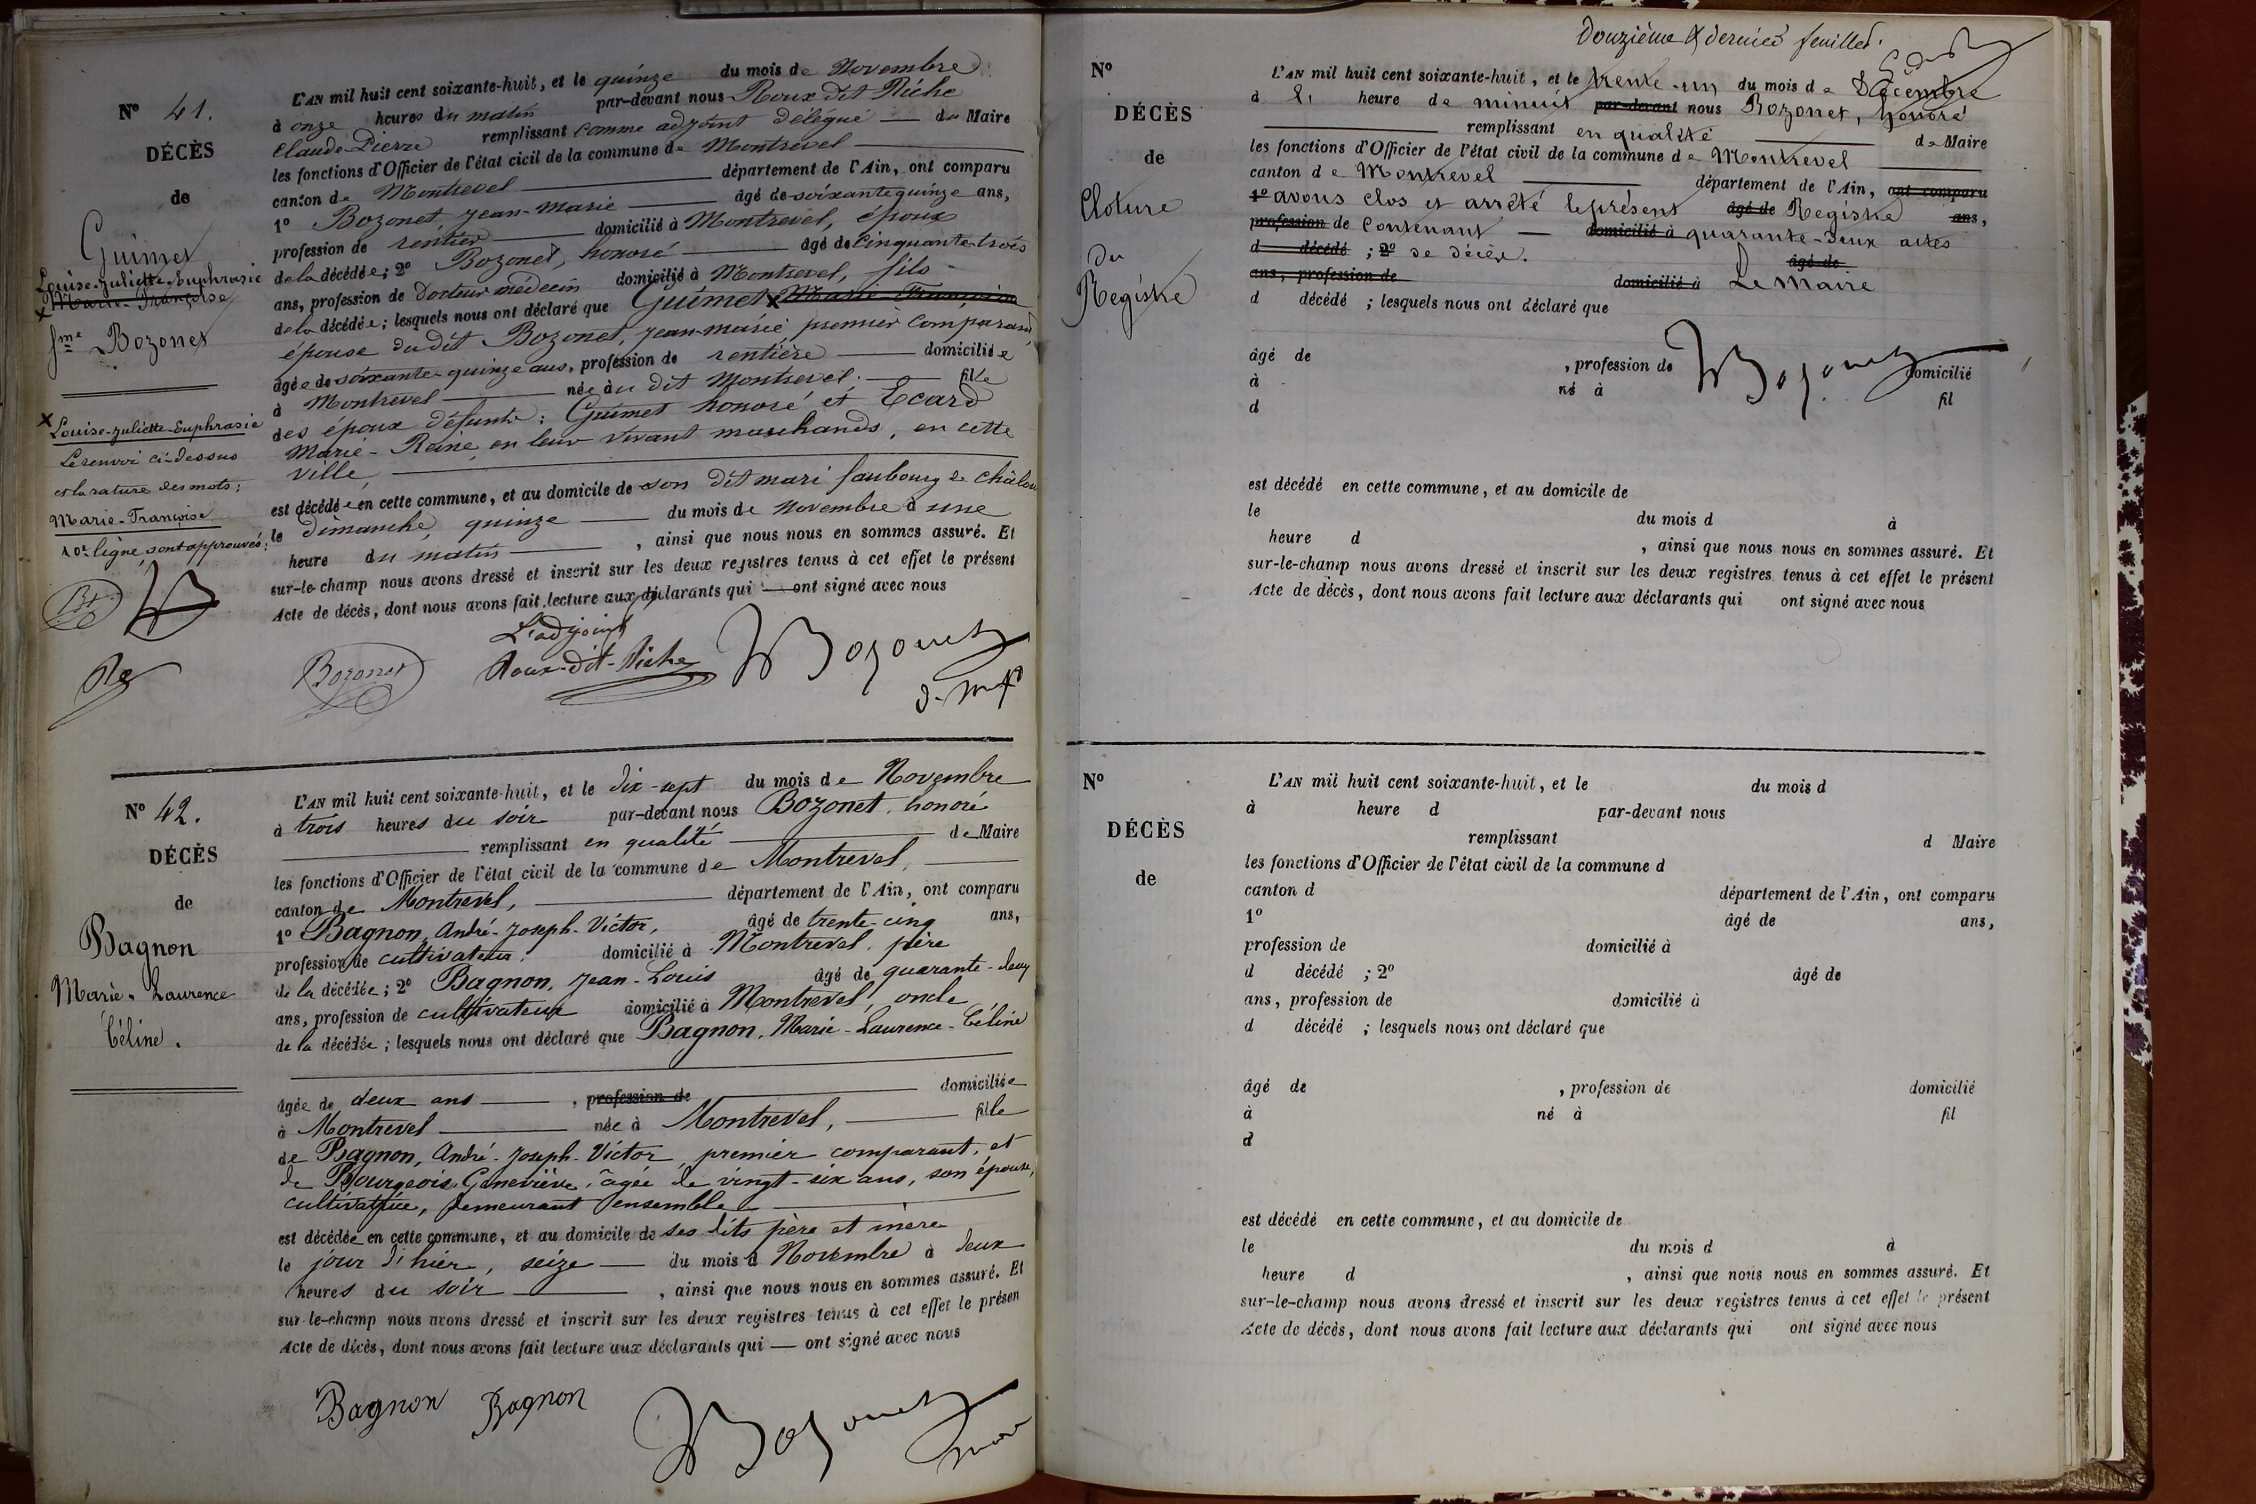 N° 41.
DÉCÈS
de
Guimet
Louise-Juliette-Euphrasie
Marie-Françoise
fme Bozonet
x Louise-Juliette-Euphrasie
Le renvoi ci-dessus
et la rature des mots:
Marie-Françoise
10e ligne, sont approuvés.
L'AN mil huit cent soixante-huit, et le quinze du mois de Novembre
à onze heures du matin par-devant nous Roux dit Riche
Claude Pierre remplissant comme adjoint délégué du Maire
les fonctions d'Officier de l'état civil de la commune de Montrevel
canton de Montrevel département de l'Ain, ont comparu
1° Bozonet, Jean-Marie âgé de soixante quinze ans,
profession de rentier domicilié à Montrevel, époux
de la décédée; 2° Bozonet, honoré âgé de cinquante-trois
ans, profession de Docteur médecin domicilié à Montrevel, fils
de la décédée; lesquels nous ont déclaré que Guimet x Marie-Françoise
épouse du dit Bozonet, Jean-Marie, premier comparant,
âgée de soixante-quinze ans, profession de rentière domiciliée
à Montrevel née au dit Montrevel. fille
des époux défunts: Guimet honoré et Ecard
Marie-Reine, en leur vivant marchands, en cette
ville,
est décédée en cette commune, et au domicile de son dit mari faubourg de Châlon
le dimanche, quinze du mois de Novembre à une
heure du matin, ainsi que nous nous en sommes assuré. Et
sur-le-champ nous avons dressé et inscrit sur les deux registres tenus à cet effet le présent
Acte de décès, dont nous avons fait lecture aux déclarants qui ont signé avec nous
L'adjoint
Bozonet Roux-dit-Riche Bozonet
N° 42.
DÉCÈS
de
Bagnon
Marie-Laurence
Céline.
L'AN mil huit cent soixante-huit, et le dix-sept du mois de Novembre
à trois heures du soir par-devant nous Bozonet, honoré
remplissant en qualité de Maire
les fonctions d'Officier de l'état civil de la commune de Montrevel,
canton de Montrevel, département de l'Ain, ont comparu
1° Bagnon, André-Joseph-Victor, âgé de trente-cinq ans,
profession de cultivateur, domicilié à Montrevel, père
de la décédée; 2° Bagnon, Jean-Louis âgé de quarante-deux
ans, profession de cultivateur domicilié à Montrevel, oncle
de la décédée; lesquels nous ont déclaré que Bagnon, Marie-Laurence-Céline
âgée de deux ans, profession de domiciliée
à Montrevel née à Montrevel, fille
de Bagnon, André-Joseph-Victor, premier comparant, et
de Bourgeois Geneviève, âgée de vingt-six ans, son épouse,
cultivatrice, demeurant ensemble
est décédée en cette commune, et au domicile de ses dits père et mère
le jour d'hier, seize du mois d Novembre à deux
heures du soir, ainsi que nous nous en sommes assuré. Et
sur-le-champ nous avons dressé et inscrit sur les deux registres tenus à cet effet le présen
Acte de décès, dont nous avons fait lecture aux déclarants qui ont signé avec nous
Bagnon Bagnon Bozonet
maire
Douzième & dernier feuillet.
N°
DÉCÈS
de
Cloture
du
Registre
L'AN mil huit cent soixante-huit, et le trente-un du mois de Décembre
à l' heure de minuit par-devant nous Bozonet, honoré
remplissant en qualité de Maire
les fonctions d'Officier de l'état civil de la commune de Montrevel
canton de Montrevel département de l'Ain, ont comparu
1° avons clos et arrêté le présent âgé de Registre ans,
profession de Contenant domicilié à quarante-deux actes
d décédé; 2° de décès. âgé de
ans, profession de domicilié à Le Maire
d décédé; lesquels nous ont déclaré que
âgé de, profession de Bozonet domicilié
à né à fil
d
est décédé en cette commune, et au domicile de
le du mois d à
heure d, ainsi que nous nous en sommes assuré. Et
sur-le-champ nous avons dressé et inscrit sur les deux registres tenus à cet effet le présent
Acte de décès, dont nous avons fait lecture aux déclarants qui ont signé avec nous
N°
DÉCÈS
de
L'AN mil huit cent soixante-huit, et le du mois d
à heure d par-devant nous
remplissant d Maire
les fonctions d'Officier de l'état civil de la commune d
canton d département de l'Ain, ont comparu
1° âgé de ans,
profession de domicilié à
d décédé; 2° âgé de
ans, profession de domicilié à
d décédé; lesquels nous ont déclaré que
âgé de, profession de domicilié
à né à fil
d
est décédé en cette commune, et au domicile de
le du mois d à
heure d, ainsi que nous nous en sommes assuré. Et
sur-le-champ nous avons dressé et inscrit sur les deux registres tenus à cet effet le présent
Acte de décès, dont nous avons fait lecture aux déclarants qui ont signé avec nous